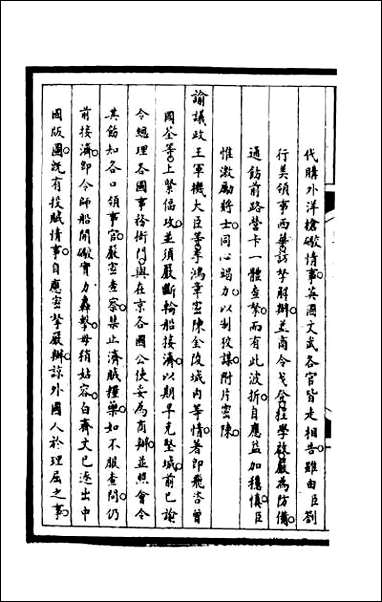 代購外洋槍礮情事英國文武各官皆走相告雖由臣劄
行美領事西華訪拏解辦並商令戈登李學啟嚴為防備
通飭前路營卡一體查拏而有此波折自應益加穩慎臣
惟激勵將士同心竭力以制狡謀附片密陳
諭議政王軍機大臣等李鴻章密陳金陵城內等情著即飛咨曾
國荃等上緊偪攻並須嚴斷輪船接濟以期早克堅城前已諭
令總理各國事務衙門與在京各國公使妥為商辦並照會令
其飭知各口領事官嚴密查察禁止濟賊糧藥如不服查問仍
前接濟即令師船開礮實力轟擊毋稍姑容白齊文已逐出中
國版圖既有投賊情事自應密拏嚴辦諒外國人於理屈之事